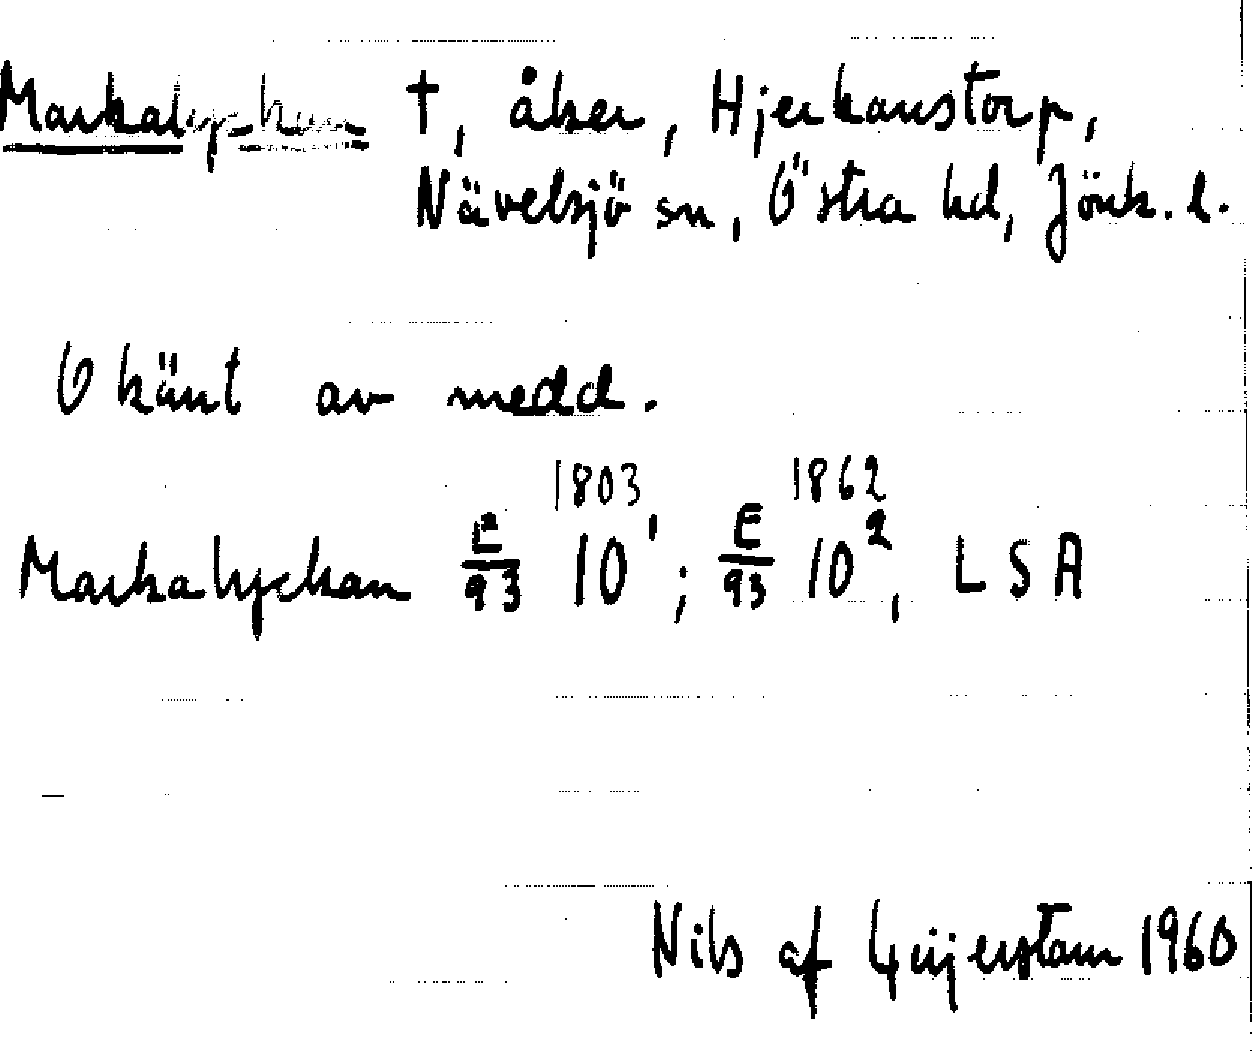 Markalyckan †, åker, Hjerkanstorp,
Nävelsjö sn, Östra hd, Jönk. l.
Okänt av medd.
1803 1862
Markalyckan E/93 10¹; E/93 10², LSA
Nils af Geijerstam 1960